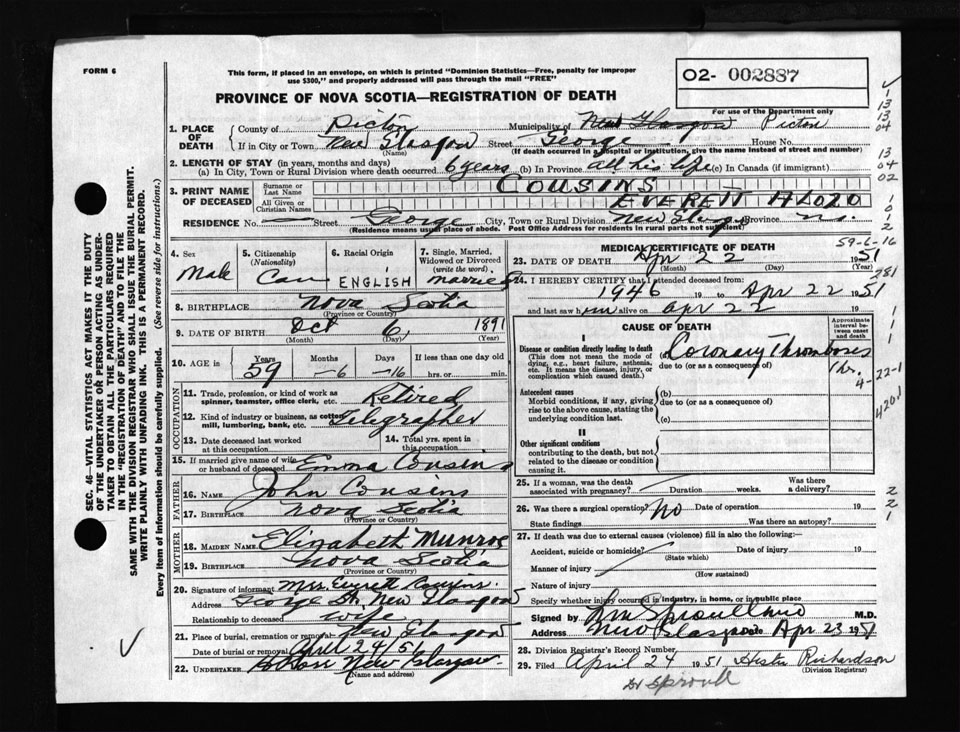 FORM 6
This form, if placed in an envelope, on which is printed "Dominion Statistics—Free, penalty for improper
use $300," and properly addressed will pass through the mail "FREE"
O2- 002887
For use of the Department only
PROVINCE OF NOVA SCOTIA—REGISTRATION OF DEATH
1. PLACE OF DEATH
County of Pictou Municipality of New Glasgow Pictou
If in City or Town New Glasgow Street George House No.
(Name) (If death occurred in a hospital or institution, give the name instead of street and number)
2. LENGTH OF STAY (in years, months and days)
(a) In City, Town or Rural Division where death occurred 6 years (b) In Province all his life (c) In Canada (if immigrant)
3. PRINT NAME OF DECEASED
Surname or Last Name COUSINS
All Given or Christian Names EVERETT ALOZO
RESIDENCE No. — Street George City, Town or Rural Division New Glasgow Province N.S.
(Residence means usual place of abode. Post Office Address for residents in rural parts not sufficient)
4. Sex Male
5. Citizenship (Nationality) Can
6. Racial Origin ENGLISH
7. Single, Married, Widowed or Divorced (write the word) married
8. BIRTHPLACE Nova Scotia
(Province or Country)
9. DATE OF BIRTH Oct 6, 1891
(Month) (Day) (Year)
10. AGE in Years Months Days If less than one day old
59 —6 —16 hrs. or min.
OCCUPATION
11. Trade, profession, or kind of work as spinner, teamster, office clerk, etc. Retired
12. Kind of industry or business, as cotton mill, lumbering, bank, etc. Telegrapher
13. Date deceased last worked at this occupation
14. Total yrs. spent in this occupation
15. If married give name of wife or husband of deceased Emma Cousins
FATHER
16. Name John Cousins
17. Birthplace Nova Scotia
(Province or Country)
MOTHER
18. Maiden Name Elizabeth Munroe
19. Birthplace Nova Scotia
(Province or Country)
20. Signature of informant Mrs. Everett Cousins.
Address George St. New Glasgow
Relationship to deceased wife
21. Place of burial, cremation or removal New Glasgow
Date of burial or removal April 24/51
22. UNDERTAKER New Glasgow
(Name and address)
59-6-16
MEDICAL CERTIFICATE OF DEATH
23. DATE OF DEATH Apr 22 1951
(Month) (Day) (Year)
24. I HEREBY CERTIFY that I attended deceased from:
1946 19 to Apr 22 1951
and last saw him alive on Apr 22 19
CAUSE OF DEATH
Approximate interval between onset and death
I
Disease or condition directly leading to death
(This does not mean the mode of dying, e.g., heart failure, asthenia, etc. It means the disease, injury, or complication which caused death.)
(a) Coronary Thromboses
due to (or as a consequence of)
1 hr.
4-22-1
4201
Antecedent causes
Morbid conditions, if any, giving rise to the above cause, stating the underlying condition last.
(b)
due to (or as a consequence of)
(c)
II
Other significant conditions
contributing to the death, but not related to the disease or condition causing it
25. If a woman, was the death associated with pregnancy? Duration weeks. Was there a delivery?
26. Was there a surgical operation? No Date of operation 19
State findings Was there an autopsy?
27. If death was due to external causes (violence) fill in also the following:—
Accident, suicide or homicide? Date of injury 19
(State which)
Manner of injury
(How sustained)
Nature of injury
Specify whether injury occurred in industry, in home, or in public place
Signed by Sproull M.D.
Address New Glasgow Date Apr 23 1951
28. Division Registrar's Record Number
29. Filed April 24 1951 Hester Richardson
(Division Registrar)
Dr Sproull
SEC. 46—VITAL STATISTICS ACT MAKES IT THE DUTY
OF THE UNDERTAKER OR PERSON ACTING AS UNDER-
TAKER TO OBTAIN ALL THE PARTICULARS REQUIRED
IN THE "REGISTRATION OF DEATH" AND TO FILE THE
SAME WITH THE DIVISION REGISTRAR WHO SHALL ISSUE THE BURIAL PERMIT.
WRITE PLAINLY WITH UNFADING INK. THIS IS A PERMANENT RECORD.
Every item of information should be carefully supplied. (See reverse side for instructions.)
1
13
13
04
13
04
02
1
0
1
2
281
1
1
1
2
2
1